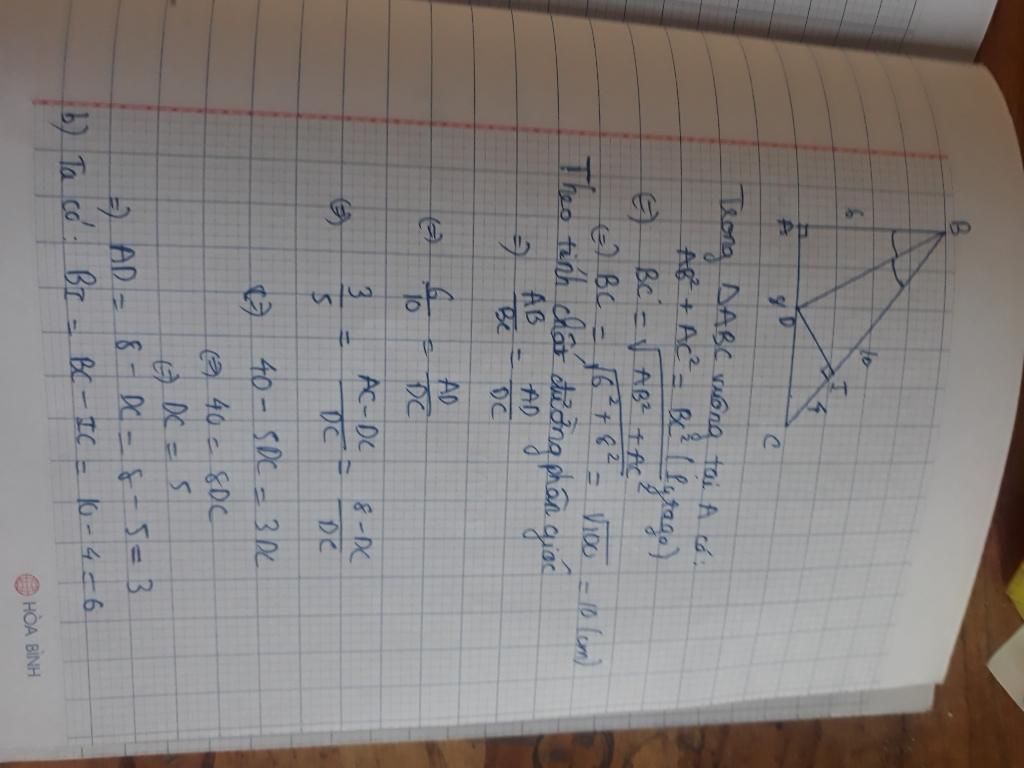 B
6
10
A
D
I
4
C
Trong ΔABC vuông tại A có:
AB² + AC² = BC² (Pytago)
(=) BC = √AB² + AC²
(=) BC = √6² + 8² = √100 = 10 (cm)
Theo tính chất đường phân giác
=) AB/BC = AD/DC
(=) 6/10 = AD/DC
(=) 3/5 = AC-DC/DC = 8-DC/DC
(=) 40 - 5DC = 3DC
(=) 40 = 8DC
(=) DC = 5
=) AD = 8 - DC = 8 - 5 = 3
b) Ta có: BI = BC - IC = 10 - 4 = 6
HÒA BÌNH